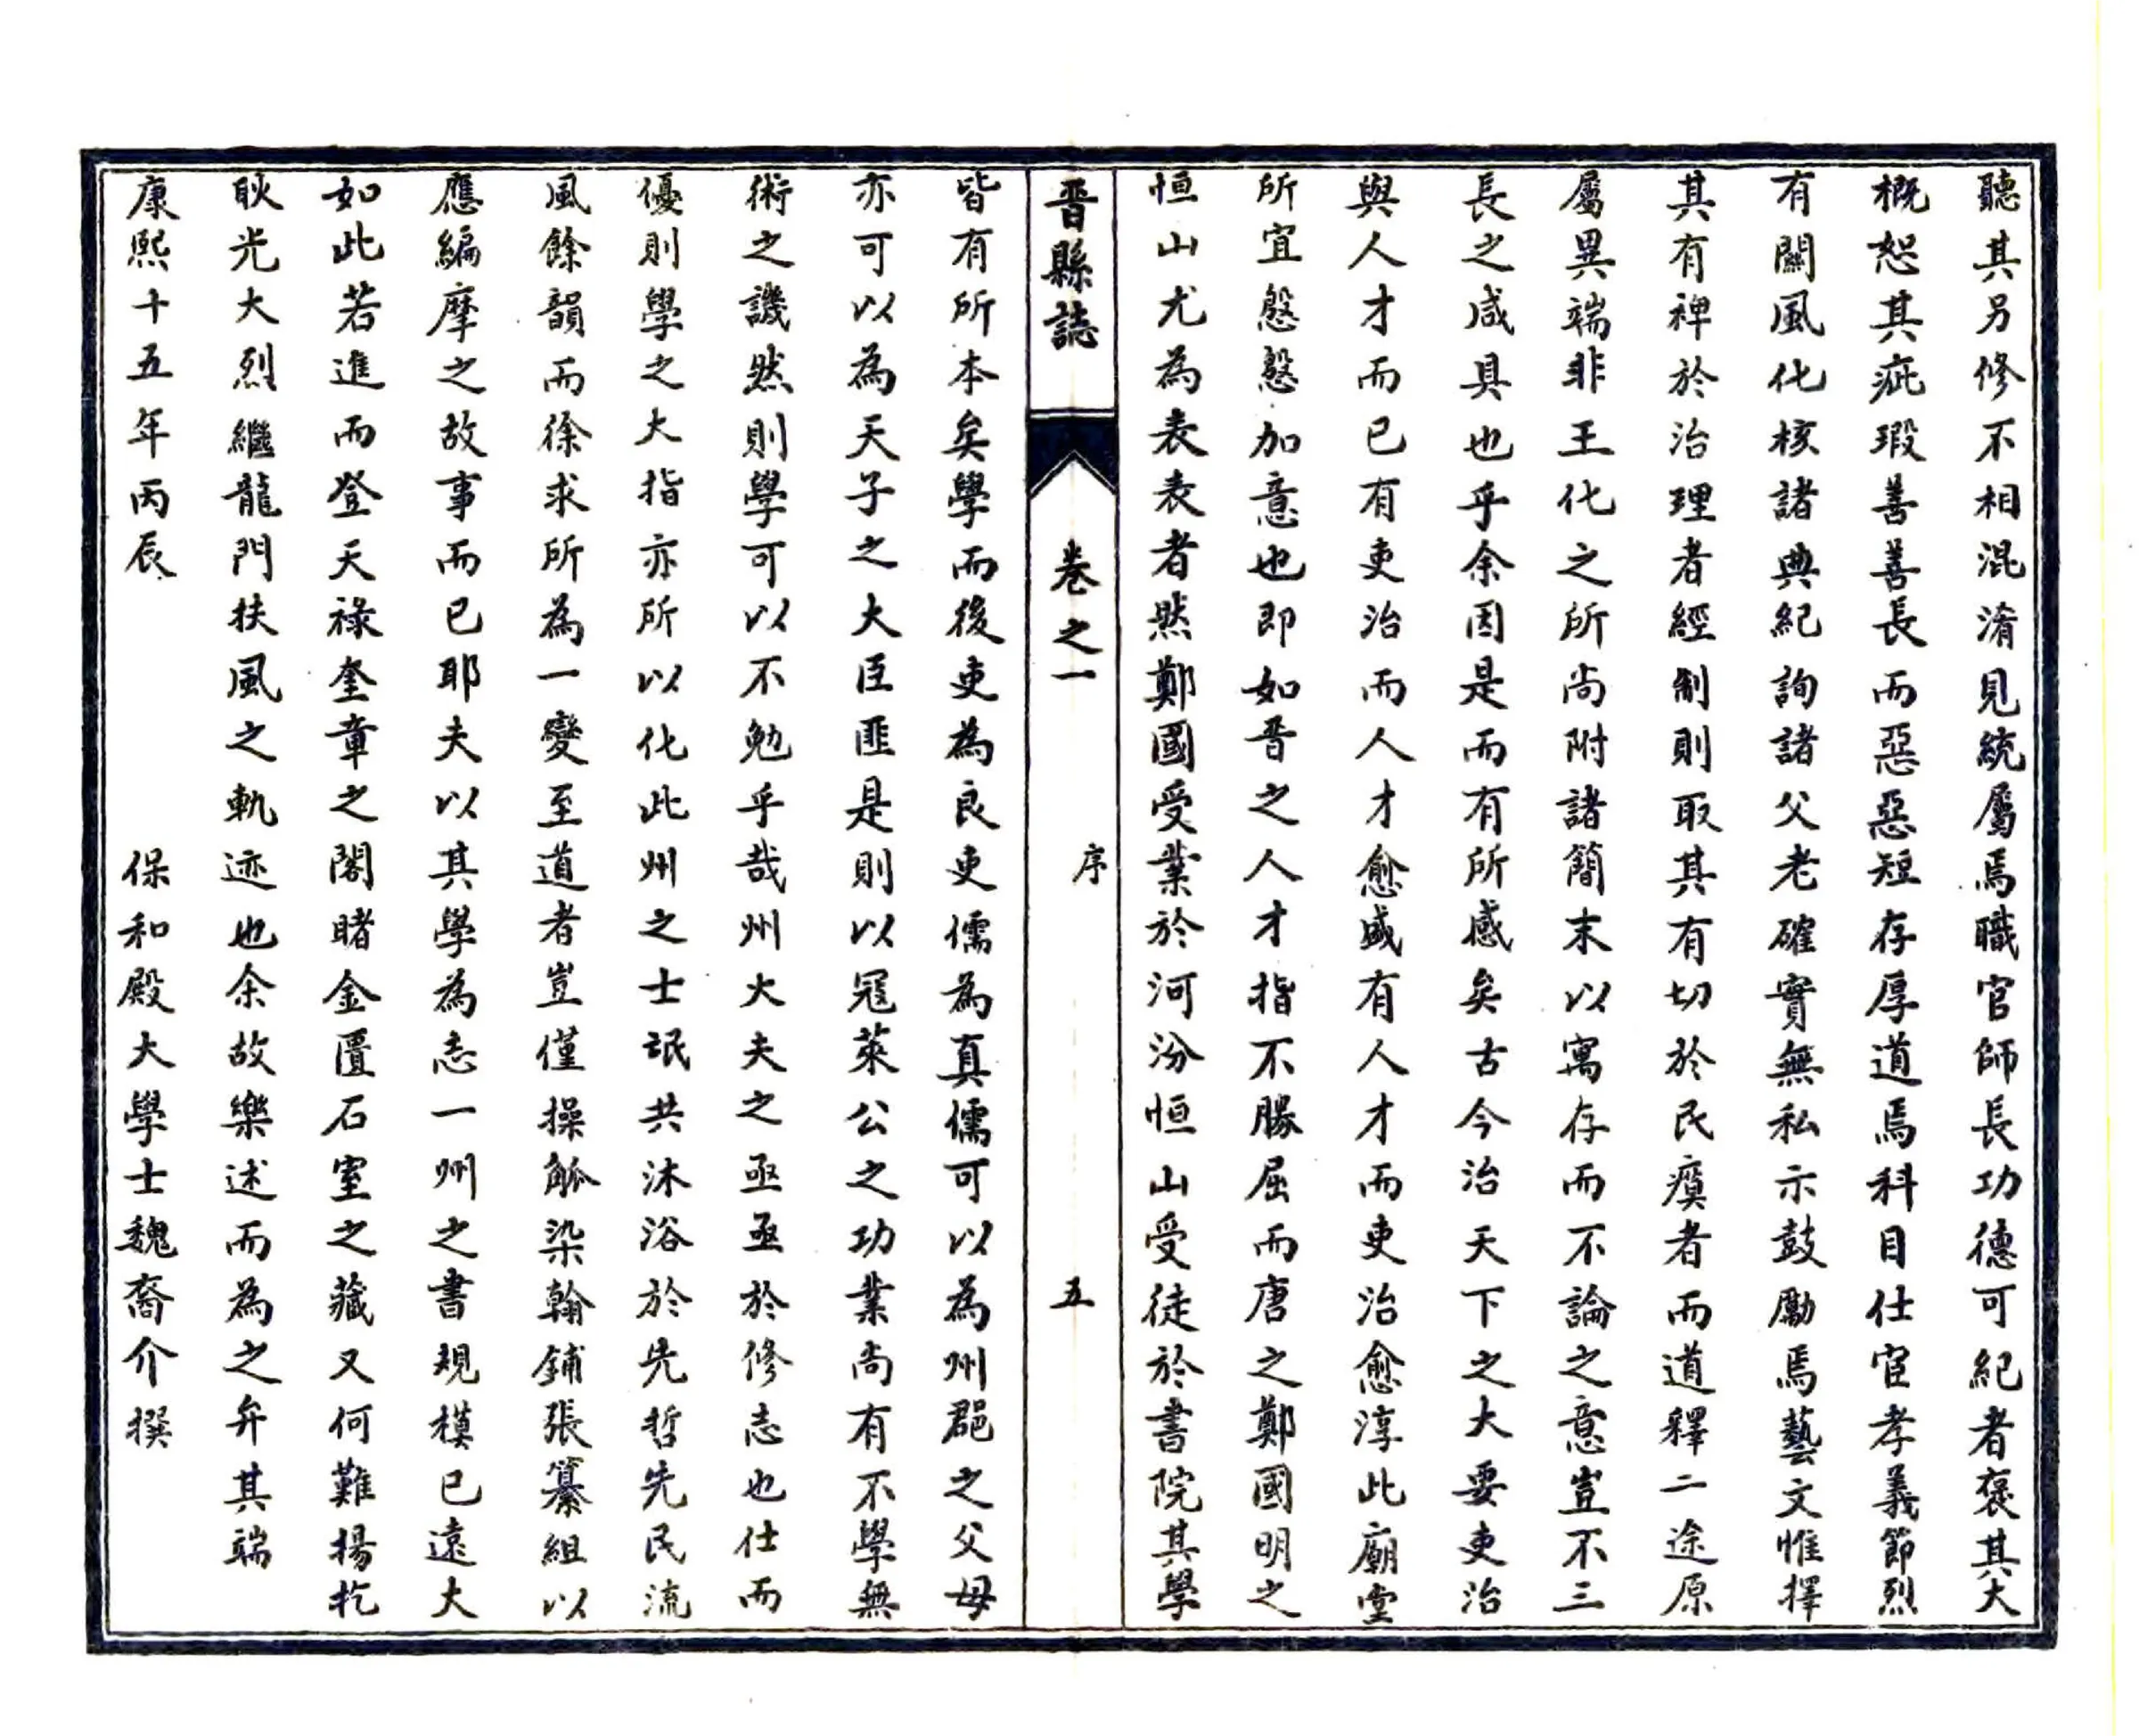 聽其另修不相混淆見統屬焉職官師長功德可紀者褒其大
概恕其疵瑕善善長而惡惡短存厚道焉科目仕宦孝義節烈
有關風化核諸典紀詢諸父老確實無私示鼓勵焉藝文惟擇
其有裨於治理者經制則取其有切於民瘼者而道釋二途原
屬異端非王化之所尚附諸簡末以寓存而不論之意豈不三
長之咸具也乎余因是而有所感矣古今治天下之大要吏治
與人才而已有吏治而人才愈盛有人才而吏治愈淳此廟堂
所宜慇慇加意也即如晉之人才指不勝屈而唐之鄭國明之
恒山尤為表表者然鄭國受業於河汾恒山受徒於書院其學
晉縣誌 卷之一 序 五
皆有所本矣學而後吏為良吏儒為真儒可以為州郡之父母
亦可以為天子之大臣匪是則以冦萊公之功業尚有不學無
術之譏然則學可以不勉乎哉州大夫之亟亟於修志也仕而
優則學之大指亦所以化此州之士氓共沐浴於先哲先民流
風餘韻而徐求所為一變至道者豈僅操觚染翰鋪張纂組以
應編摩之故事而已耶夫以其學為志一州之書規模已遠大
如此若進而登天祿奎章之閣睹金匱石室之藏又何難揚扢
耿光大烈繼龍門扶風之軌迹也余故樂述而為之弁其端
康熙十五年丙辰 保和殿大學士魏裔介撰